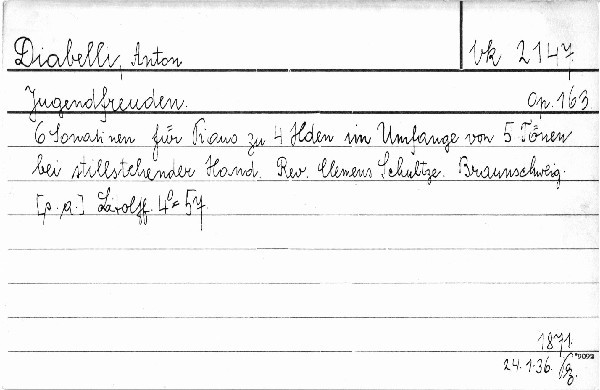 Diabelli, Anton
Vk 2147
Jugendfreuden. Op. 163
6 Sonatinen für Piano zu 4 Hden im Umfange von 5 Tönen
bei stillstehender Hand. Rev. Clemens Schultze. Braunschweig.
[s. a.] Litolff. 4° 57
1871.
24.1.36.